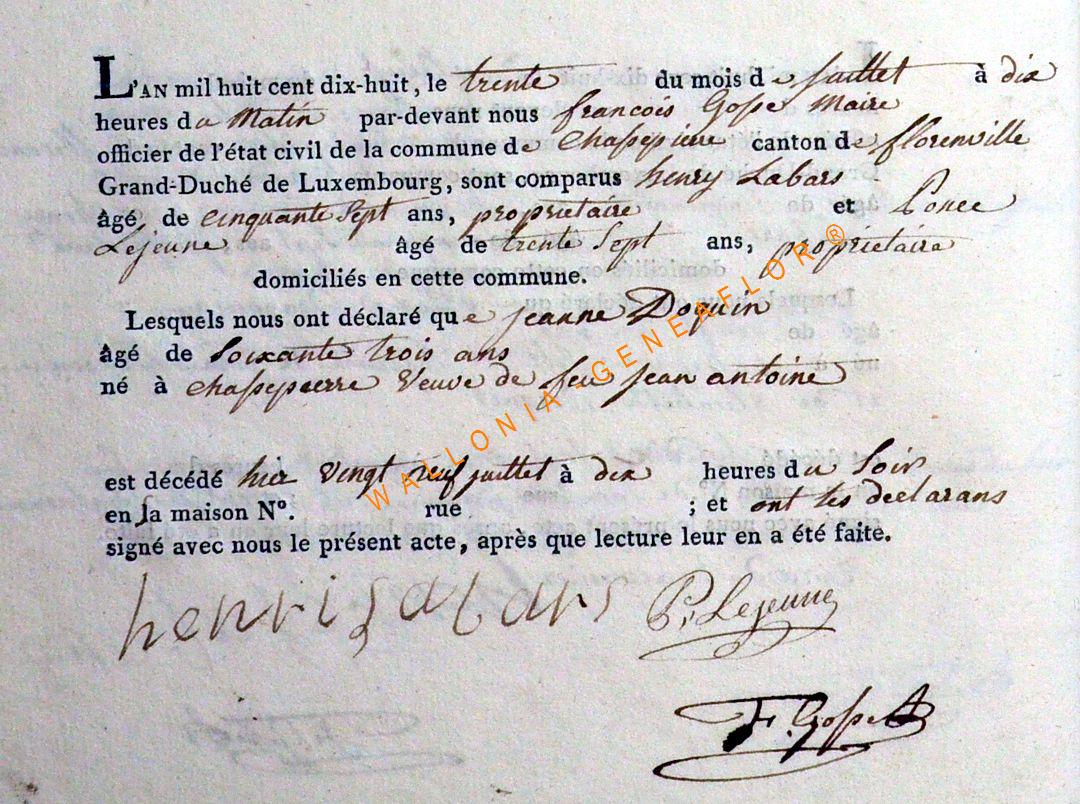 L'AN mil huit cent dix-huit, le trente du mois de juillet à dix
heures du Matin par-devant nous francois Gosse Maire
officier de l'état civil de la commune de Chassepierre canton de florenville
Grand-Duché de Luxembourg, sont comparus henry Labars
âgé de cinquante Sept ans, proprietaire et Ponce
Lejeune âgé de trente Sept ans, proprietaire
domiciliés en cette commune.
Lesquels nous ont déclaré que jeanne Doquin
âgé de Soixante trois ans
né à chassepierre Veuve de feu jean antoine
est décédé hier vingt neuf juillet à dix heures du Soir
en la maison N°. rue ; et ont les declarans
signé avec nous le présent acte, après que lecture leur en a été faite.
henri Labars P. Lejeune
F. Gosse
WALLONIA-GENEAFLOR ®